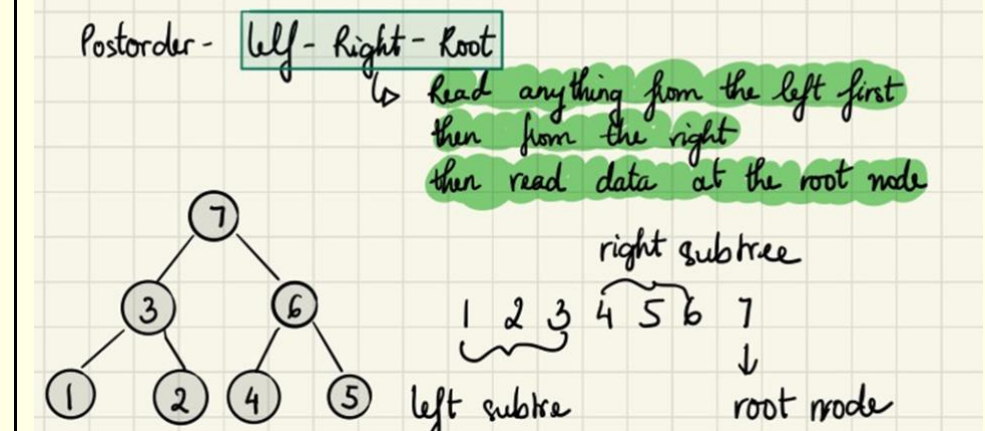 Postorder - Left - Right - Root
Read anything from the left first
then from the right
then read data at the root node
7
right subtree
3 6
1 2 3 4 5 6 7
1 2 4 5
left subtre
root node